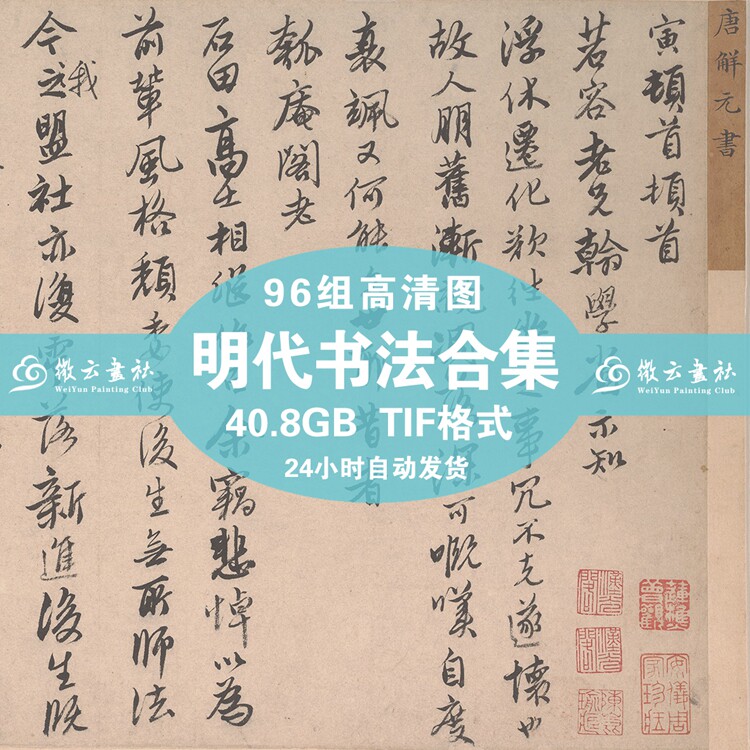 唐解元書
寅頓首頓首
若容老兄翰學
示知
浮休遷化歎往
事冗不克遂懷也
故人朋舊漸
可嘅嘆自度
衰颯又何能
昔者
匏庵閣老
石田高士相繼
余竊悲悼以為
前輩風格頹委使後生無所師法
今我之盟社亦復零落新進後生既
96组高清图
明代书法合集
40.8GB TIF格式
24小时自动发货
微云畫社
WeiYun Painting Club
微云畫社
WeiYun Painting Club
安儀周家珍藏